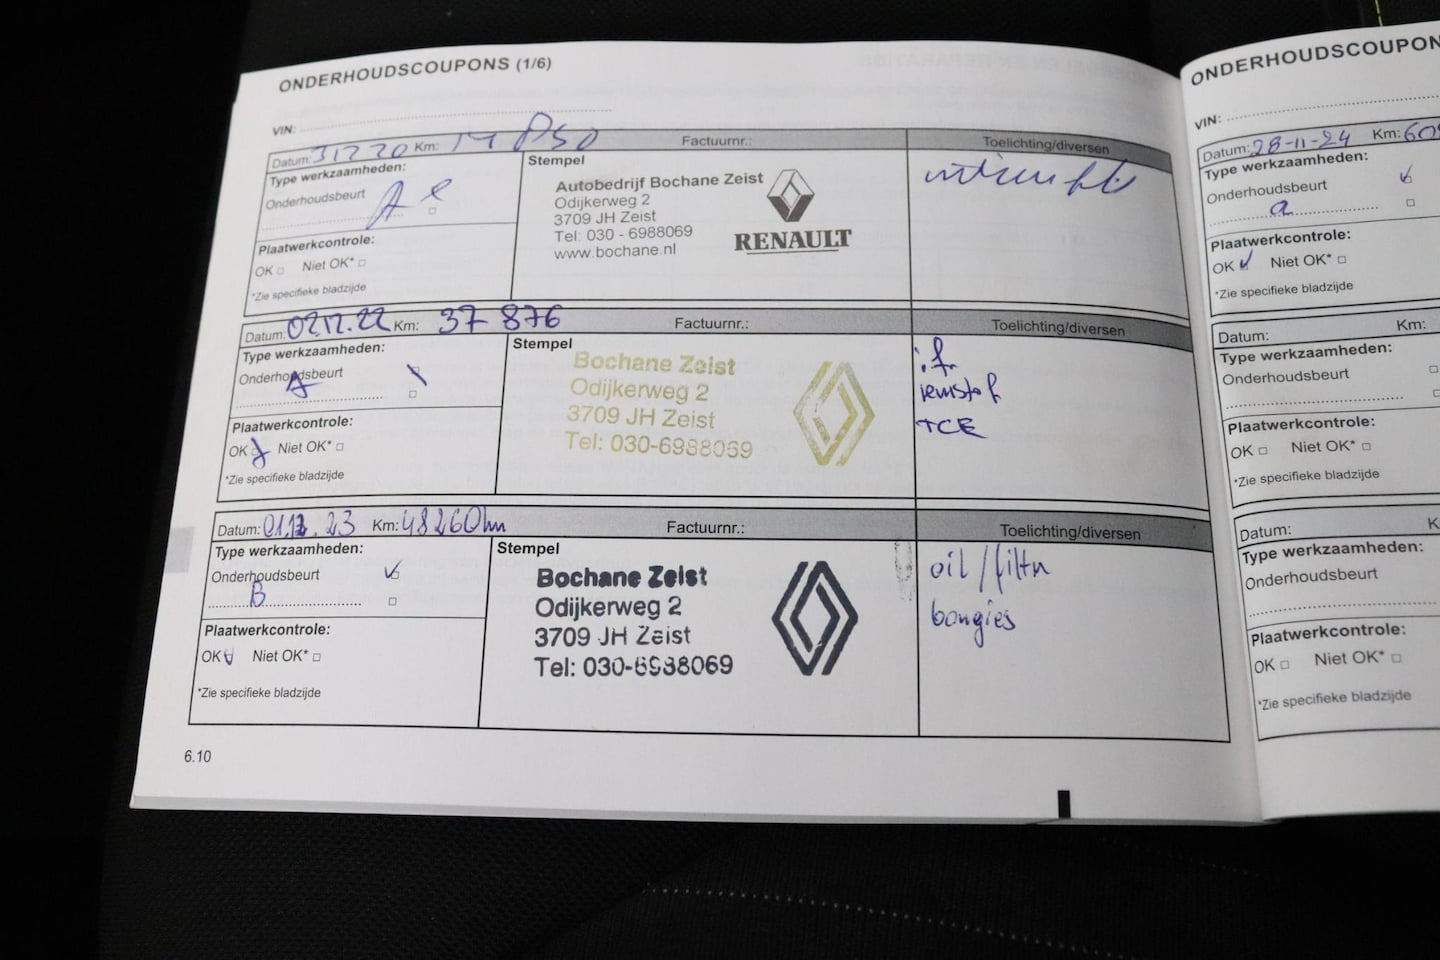 ONDERHOUDSCOUPONS (1/6)
VIN:
Datum: 31220 Km: Factuurnr.: Toelichting/diversen
Type werkzaamheden:
Onderhoudsbeurt
A
Plaatwerkcontrole:
OK Niet OK*
*Zie specifieke bladzijde
Stempel
Autobedrijf Bochane Zeist
Odijkerweg 2
3709 JH Zeist
Tel: 030 - 6988069
www.bochane.nl
RENAULT
Datum: 0212.22 Km: 37 876 Factuurnr.: Toelichting/diversen
Type werkzaamheden:
Onderhoudsbeurt
A
Plaatwerkcontrole:
OK Niet OK*
*Zie specifieke bladzijde
Stempel
Bochane Zeist
Odijkerweg 2
3709 JH Zeist
Tel: 030-6988069
i.f.
remstof
TCE
Datum: 01.12.23 Km: 48260km Factuurnr.: Toelichting/diversen
Type werkzaamheden:
Onderhoudsbeurt
B
Plaatwerkcontrole:
OK Niet OK*
*Zie specifieke bladzijde
Stempel
Bochane Zeist
Odijkerweg 2
3709 JH Zeist
Tel: 030-6988069
oil/filtr
bougies
6.10
ONDERHOUDSCOUPON
VIN:
Datum: 28-11-24 Km: 609
Type werkzaamheden:
Onderhoudsbeurt
a
Plaatwerkcontrole:
OK Niet OK*
*Zie specifieke bladzijde
Datum: Km:
Type werkzaamheden:
Onderhoudsbeurt
Plaatwerkcontrole:
OK Niet OK*
*Zie specifieke bladzijde
Datum: K
Type werkzaamheden:
Onderhoudsbeurt
Plaatwerkcontrole:
OK Niet OK*
*Zie specifieke bladzijde